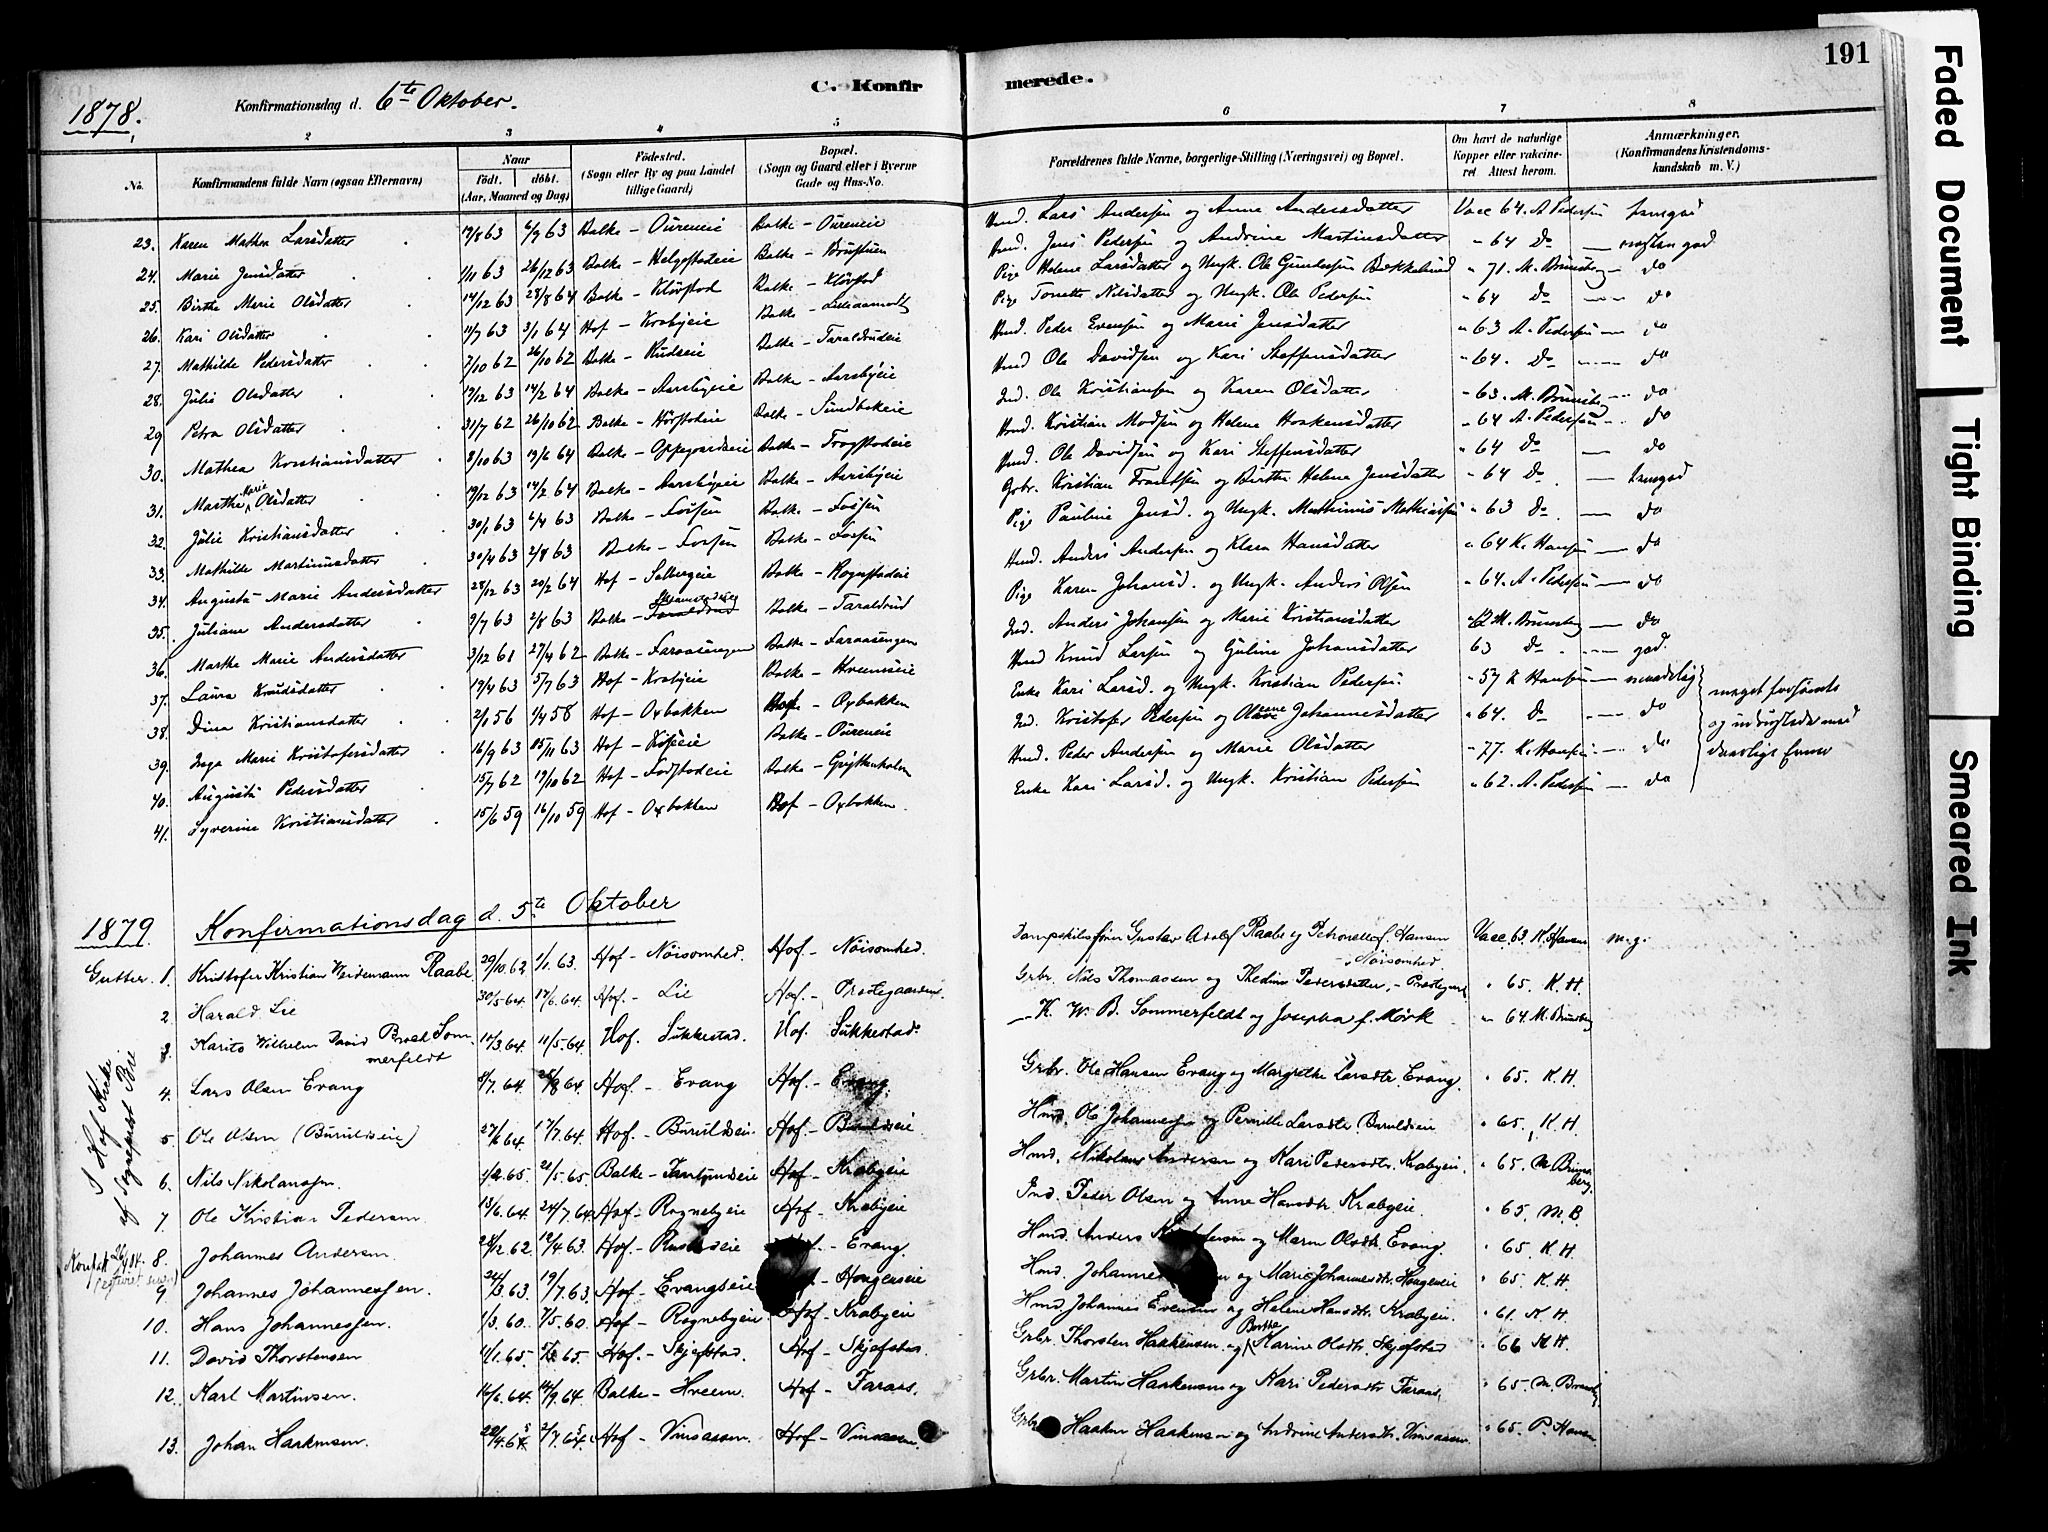 191
Faded Document
Tight Binding
Smeared Ink
C. Konfirmerede.
1878. Konfirmationsdag d. 6te Oktober.
1 2 3 4 5 6 7 8
No. Konfirmandens fulde Navn (ogsaa Efternavn) Naar født. døbt. (Aar, Maaned og Dag) Fødested. (Sogn eller By og paa Landet tillige Gaard) Bopæl. (Sogn og Gaard eller i Byerne Gade og Hus-No. Forældrenes fulde Navne, borgerlige Stilling (Næringsvei) og Bopæl. Om havt de naturlige Kopper eller vaccineret Attest herom. Anmærkninger. (Konfirmandens Kristendomskundskab m. V.)
23. Karen Mathea Larsdatter 19/8 63 6/9 63 Balke - Oureneie Balke - Oureneie Hmd. Lars Andersen og Anne Andersdatter Vacc 64. A Pedersen
24. Marie Jensdatter 1/11 63 26/12 63 Balke - Balke - Hmd. Jens Pedersen og Andrine Martinsdatter " 64 Do næsten god
25. Birthe Marie Olsdatter 14/12 63 28/8 64 Balke - Kløvstad Balke - Kløvstad Pige Helene Larsdatter og Ungk. Ole Gundersen " 71. M. Brunsberg - do
26. Kari Olsdatter 11/7 63 3/1 64 Hof - Krabyeie Balke - Pige Tonette Nilsdatter og Ungk. Ole Pedersen " 64 Do do
27. Mathilde Pedersdatter 7/10 62 26/10 62 Balke - Rudseie Balke - Taraldrudeie Hmd. Peder Evensen og Marie Jensdatter " 63 A. Pedersen do
28. Julie Olsdatter 19/12 63 14/2 64 Balke - Aarsbyeie Balke - Aarsbyeie Hmd Ole Davidsen og Kari Steffensdatter " 64. Do do
29 Petra Olsdatter 31/7 62 26/10 62 Balke - Balke - Sundbakeie Ind. Ole Kristiansen og Karen Olsdatter " 63. M. Brunsberg do
30. Mathea Kristiansdatter 8/10 63 19/6 64 Balke - Oppegaardseie Balke - Frogstadeie Hmd. Kristian Madsen og Helene Haakensdatter " 64 A. Pedersen do
31. Marthe Marie Olsdatter 19/12 63 14/2 64 Balke - Aarsbyeie Balke - Aarsbyeie Hmd. Ole Davidsen og Kari Steffensdatter " 64 Do do
32. Julie Kristiansdatter 30/1 63 6/4 63 Balke - Fossen Balke - Fossen Gbr. Kristian Frandsen og Birthe Helene Jensdatter " 64 Do
33. Mathilde Martinusdatter 30/4 63 2/8 63 Balke - Fossen Balke - Fossen Pige Pauline Jensd. og Ungk. Mathinus Mathiassen " 63 Do. do
34. Augusta Marie Andersdatter 28/12 63 20/2 64 Hof - Solbergeie Balke - Rognstadeie Hmd. Anders Andersen og Klara Hansdatter " 64 K. Hansen do
35. Juliane Andersdatter 9/7 63 2/8 63 Balke - Taraldrud Balke - Taraldrud Pige Karen Johansd. og Ungk. Anders Olsen " 64. A. Pedersen do
36. Marthe Marie Andersdatter 3/12 61 27/4 62 Balke - Faraasengen Balke - Faraasengen Ind. Anders Johansen og Marie Kristiansdatter 62 M. Brunsberg do
37. Laura Knudsdatter 19/4 63 5/7 63 Hof - Krabyeie Balke - Hveemseie Hmd Knud Larsen og Guline Johansdatter 63 Do god.
38. Dina Kristiansdatter 2/1 56 1/4 58 Hof - Oxbakken Hof - Oxbakken Enke Kari Larsd. og Ungk. Kristian Pedersen " 57 K Hansen maadelig
39. Inga Marie Kristofersdatter 16/9 63 15/11 63 Hof - Kiseeie Balke - Oureneie Ind. Kristofer Pedersen og Johannesdatter " 64. Do do
40. Augusta Pedersdatter 15/7 62 19/10 62 Hof - Balke - Hmd. Peder Andersen og Marie Olsdatter " 77. K. Hansen do
41. Syverine Kristiansdatter 15/6 59 16/10 59 Hof - Oxbakken Hof - Oxbakken. Enke Kari Larsd. og Ungk. Kristian Pedersen " 62. A. Pedersen do
meget forsømte
og udrustede med
daarlige Evner
1879. Konfirmationsdag d. 5te Oktober
Gutter. 1. Kristofer Kristian Weidemann Raabe 29/10. 62 1/1. 63. Hof - Nöisomhed. Hof - Nöisomhed. Dampskibsfører Gustav Adolf Raabe og Petronelle f. Hansen - Nöisomhed Vacc. 63. K. Hansen m.g.
2. Harald Lie 30/5 64 17/6. 64. Hof. - Lie Hof. - Præstegaarden. Grbr. Nils Thomassen og Pedersdatter, - Præstegaard " 65. K. H.
3. Wilhelm David Broch Sommerfeldt 10/3. 64. 11/5. 64. Hof. Sukkestad. Hof. Sukkestad. K. W. B. Sommerfeldt og Josepha f. Mörk " 64. M. Brunsberg
4. Lars Olsen Evang 8/7. 64 /8 64 Hof - Evang Hof. - Evang. Grbr. Ole Hansen Evang og Margrethe Larsdtr. Evang. " 65. K. H.
5. Ole Olsen (Buruldseie) 27/6 64. 17/7. 64. Hof. - Buruldseie Hof. - Buruldseie Hmd. Ole Johannessen og Pernille Larsdtr. Buruldseie " 65. K. H.
6. Nils Nikolaissen. 1/2. 65. 21/5. 65. Balke - Hof - Krabyeie Hmd. Nikolaus Andersen og Kari Pedersdtr. Krabyeie. " 65. M Brunsberg.
7. Ole Kristian Pedersen. 13/6. 64. 24/7. 64. Hof. - Rognebyeie Hof. - Krabyeie Ind. Peder Olsen og Anne Hansdtr. Krabyeie. " 65. M. B.
8. Johannes Andersen. 28/12. 62 12/4. 63. Hof. - Hof. - Evang. Hmd. Anders og Maren Olsdtr. Evang. " 65. K. H.
9 Johannes Johannessen. 24/3. 63. 19/7. 63. Hof - Evangseie Hof - Haugeneie Hmd. Johannes og Marie Johannesdtr. Haugeneie " 65. K. H.
10. Hans Johannessen. 1/3. 60. 7/5. 60. Hof. - Rognebyeie Hof - Krabyeie Hmd. Johannes Evensen og Helene Hansdtr. Krabyeie. " 61. K. H.
11. David Thorstensen 4/1. 65. 5/ 65. Hof. - Skjefstad. Hof - Skjefstad. Grbr. Thorsten Haakensen og Berthe Karine Olsdtr. Skjefstad " 66 K H.
12. Karl Martinsen. 16/6. 64. 18/9. 64. Balke - Hveem. Hof - Faraas. Grbr. Martin Haakensen og Kari Pedersdtr. Faraas. " 65. M. Brunsberg
13. Johan Haakensen. 22/4. 64. 3/7. 64. Hof - Vinsassen. Hof - Vinsassen. Grbr. Haaken Haakensen og Andrine Andersdtr. Vinsassen. " 65. P. Hansen
I Hof Kirke
af Sognepræst Bie